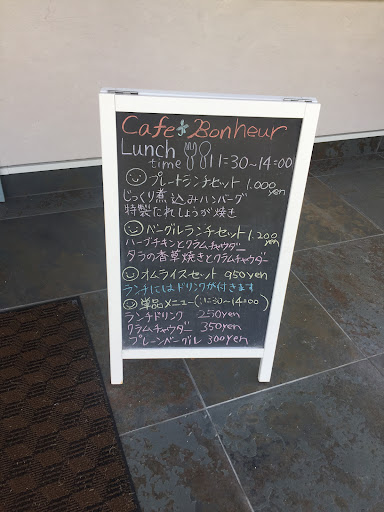 Cafe*Bonheur
Lunch time 11:30~14:00
プレートランチセット 1.000yen
じっくり煮込みハンバーグ
特製だれしょうが焼き
ベーグルランチセット 1.200yen
ハーブチキンとクラムチャウダー
タラの香草焼きとクラムチャウダ
オムライスセット 950yen
ランチにはドリンクが付きます
単品メニュー(11:30~14:00)
ランチドリンク 250yen
クラムチャウダー 350yen
プレーンベーグル 300yen